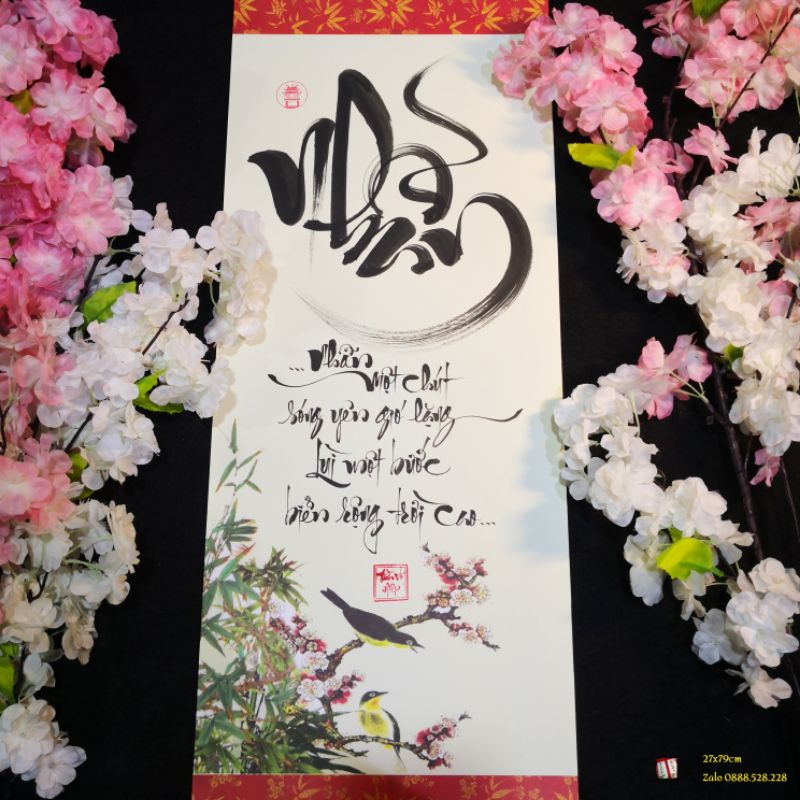 Nhẫn
...Nhẫn một chút
sóng yên gió lặng
Lùi một bước
biển rộng trời cao...
27x79cm
Zalo 0888.528.228